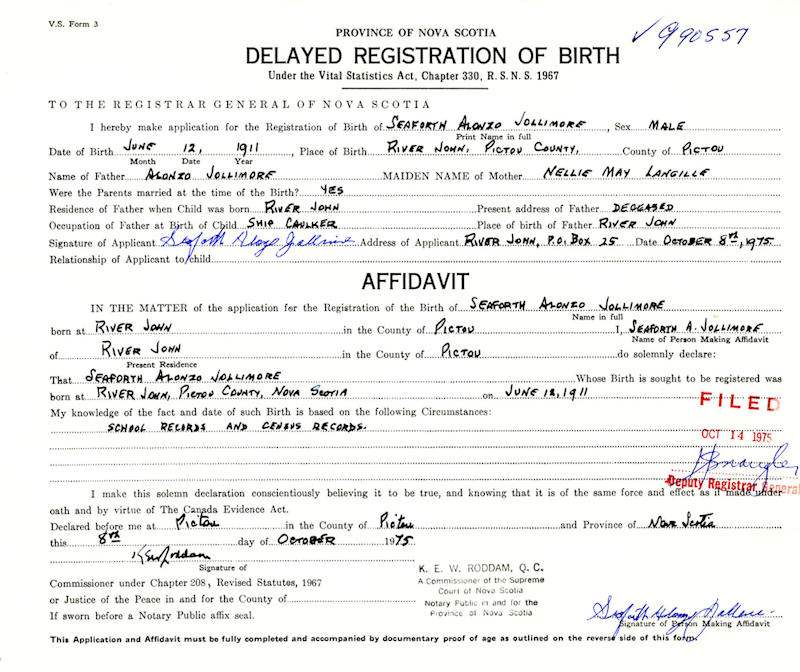 V.S. Form 3
PROVINCE OF NOVA SCOTIA
✓ 990557
DELAYED REGISTRATION OF BIRTH
Under the Vital Statistics Act, Chapter 330, R.S.N.S. 1967
TO THE REGISTRAR GENERAL OF NOVA SCOTIA
I hereby make application for the Registration of Birth of SEAFORTH ALONZO JOLLIMORE, Sex MALE
Print Name in full
Date of Birth JUNE 12, 1911, Place of Birth RIVER JOHN, PICTOU COUNTY, County of PICTOU
Month Date Year
Name of Father ALONZO JOLLIMORE MAIDEN NAME of Mother NELLIE MAY LANGILLE
Were the Parents married at the time of the Birth? YES
Residence of Father when Child was born RIVER JOHN Present address of Father DECEASED
Occupation of Father at Birth of Child SHIP CAULKER Place of birth of Father RIVER JOHN
Signature of Applicant Seaforth Alonzo Jollimore Address of Applicant RIVER JOHN, P.O. BOX 25 Date OCTOBER 8TH, 1975
Relationship of Applicant to child
AFFIDAVIT
IN THE MATTER of the application for the Registration of the Birth of SEAFORTH ALONZO JOLLIMORE
Name in full
born at RIVER JOHN in the County of PICTOU I, SEAFORTH A. JOLLIMORE
Name of Person Making Affidavit
of RIVER JOHN in the County of PICTOU do solemnly declare:
Present Residence
That SEAFORTH ALONZO JOLLIMORE Whose Birth is sought to be registered was
born at RIVER JOHN, PICTOU COUNTY, NOVA SCOTIA on JUNE 12, 1911
My knowledge of the fact and date of such Birth is based on the following Circumstances:
SCHOOL RECORDS AND CENSUS RECORDS.
FILED
OCT 14 1975
Deputy Registrar General
I make this solemn declaration conscientiously believing it to be true, and knowing that it is of the same force and effect as if made under
oath and by virtue of The Canada Evidence Act.
Declared before me at Pictou in the County of Pictou and Province of Nova Scotia
this 8TH day of OCTOBER 1975
KEW Roddam
Signature of
Commissioner under Chapter 208, Revised Statutes, 1967
or Justice of the Peace in and for the County of
If sworn before a Notary Public affix seal.
K. E. W. RODDAM, Q. C.
A Commissioner of the Supreme
Court of Nova Scotia
Notary Public in and for the
Province of Nova Scotia
Seaforth Alonzo Jollimore
Signature of Person Making Affidavit
This Application and Affidavit must be fully completed and accompanied by documentary proof of age as outlined on the reverse side of this form.